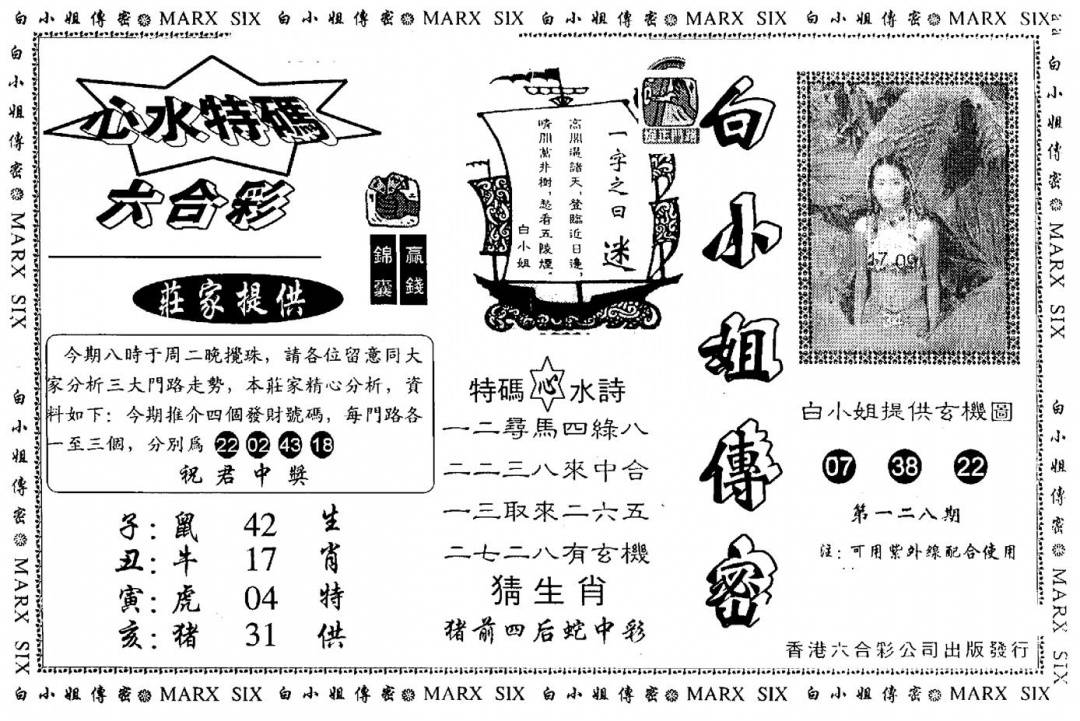 白小姐傳密 MARX SIX 白小姐傳密 MARX SIX 白小姐傳密 MARX SIX 白小姐傳密 MARX SIX
白小姐傳密 MARX SIX 白小姐傳密 MARX SIX
心水特碼
六合彩
贏錢
錦囊
莊家提供
今期八時于周二晚攪珠，請各位留意同大
家分析三大門路走勢，本莊家精心分析，資
料如下：今期推介四個發財號碼，每門路各
一至三個，分別爲 22 02 43 18
祝君中獎
子：鼠 42
丑：牛 17
寅：虎 04
亥：猪 31
生肖特供
一字之曰 迷
高閣逼諸天，登臨近日邊，
晴開萬井樹，愁看五陵煙。
白小姐
特碼心水詩
一二尋馬四綠八
二二三八來中合
一三取來二六五
二七二八有玄機
猜生肖
猪前四后蛇中彩
白小姐傳密
17 09
白小姐提供玄機圖
07 38 22
第一二八期
注：可用紫外線配合使用
香港六合彩公司出版發行
白小姐傳密 MARX SIX 白小姐傳密 MARX SIX
白小姐傳密 MARX SIX 白小姐傳密 MARX SIX 白小姐傳密 MARX SIX 白小姐傳密 MARX SIX